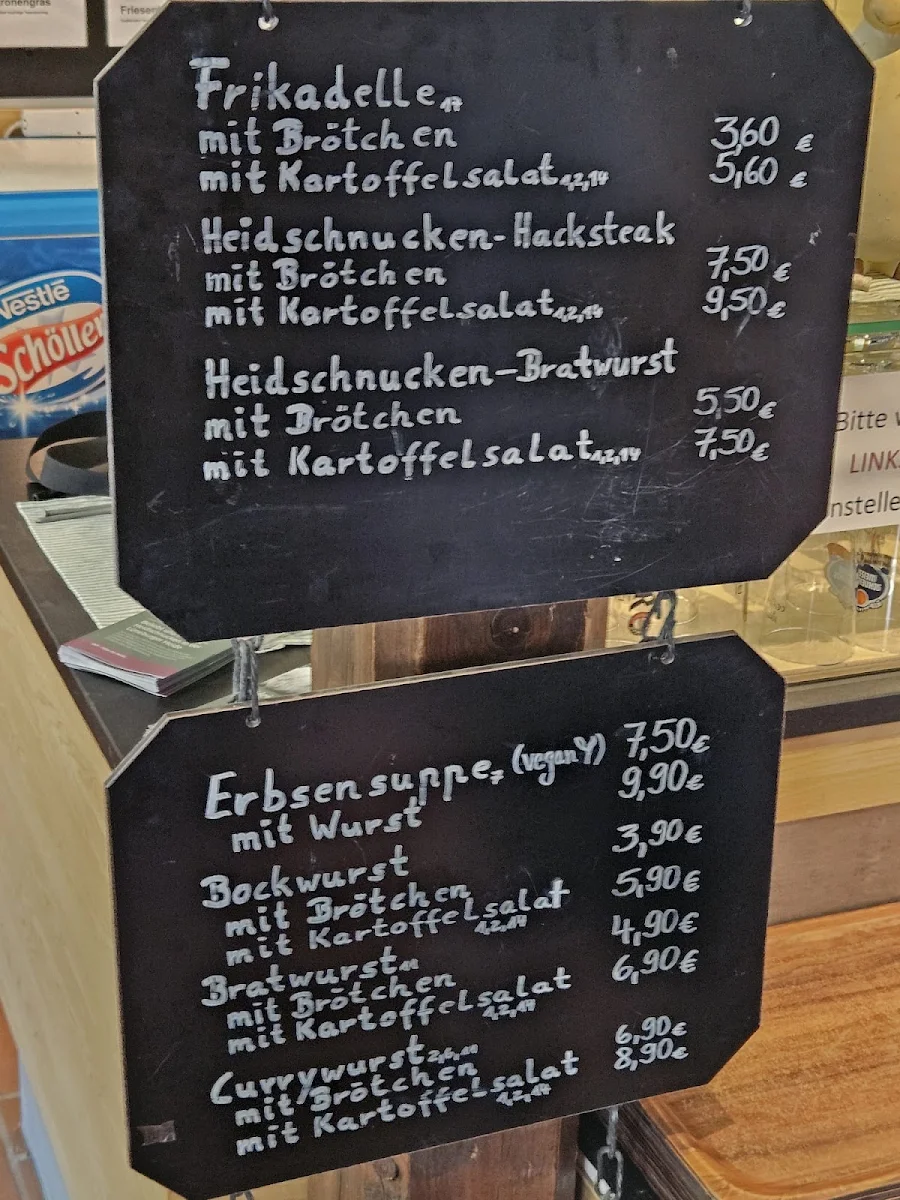 Friesen
Frikadelle 17
mit Brötchen 3,60 €
mit Kartoffelsalat 1,2,14 5,60 €
Heidschnucken-Hacksteak
mit Brötchen 7,50 €
mit Kartoffelsalat 1,2,14 9,50 €
Heidschnucken-Bratwurst
mit Brötchen 5,50 €
mit Kartoffelsalat 1,2,14 7,50 €
Nestlé
Schöller
Bitte
LINK
nstelle
Erbsensuppe 7 (vegan Y) 7,50 €
mit Wurst 9,90 €
Bockwurst
mit Brötchen 3,90 €
mit Kartoffelsalat 1,2,14 5,90 €
Bratwurst
mit Brötchen 4,90 €
mit Kartoffelsalat 6,90 €
Currywurst
mit Brötchen 6,90 €
mit Kartoffelsalat 8,90 €